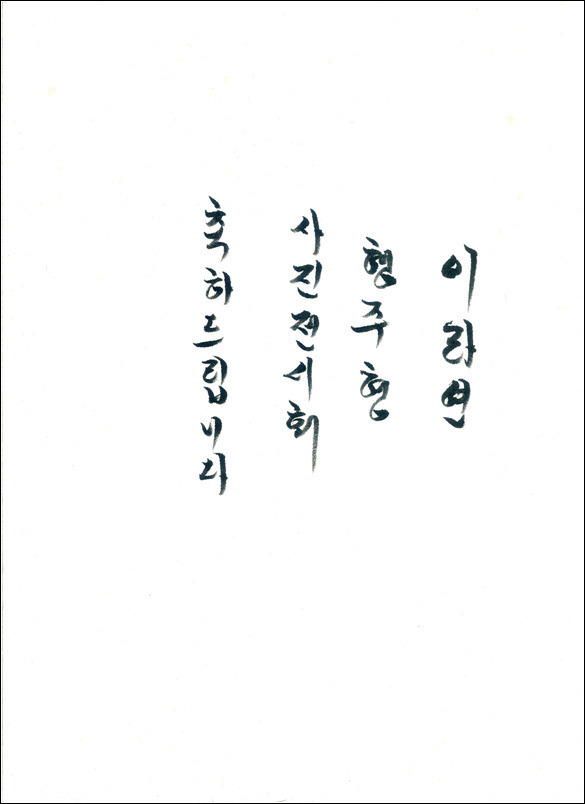 이라연
형주형
사진전시회
축하드립니다